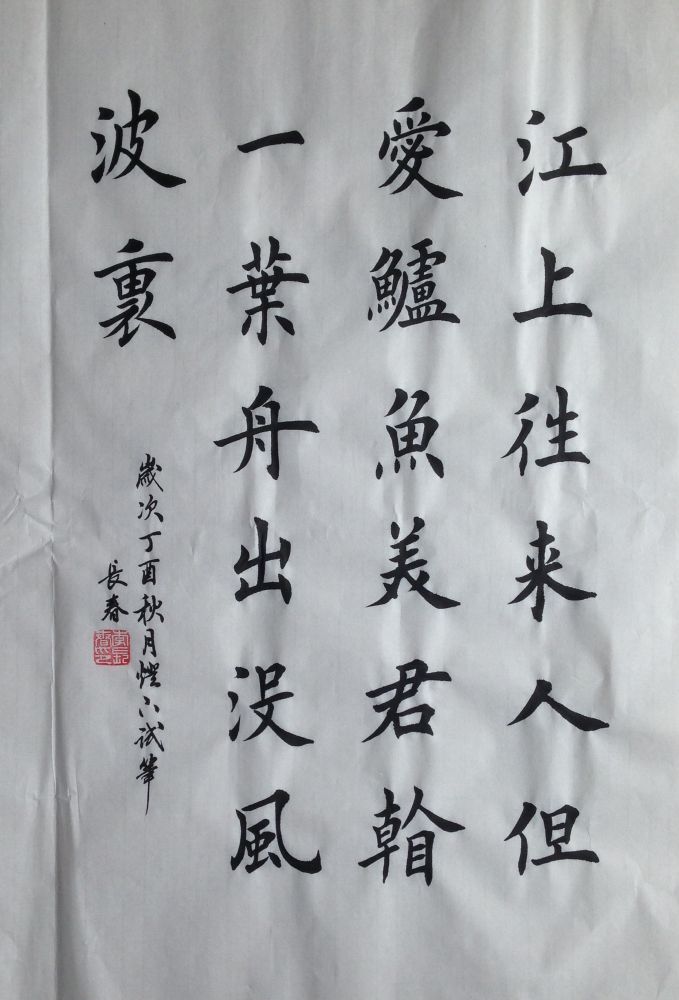 江上徃来人但
愛鱸魚美君看
一葉舟出没風
波裏
歲次丁酉秋月燈下試筆
長春